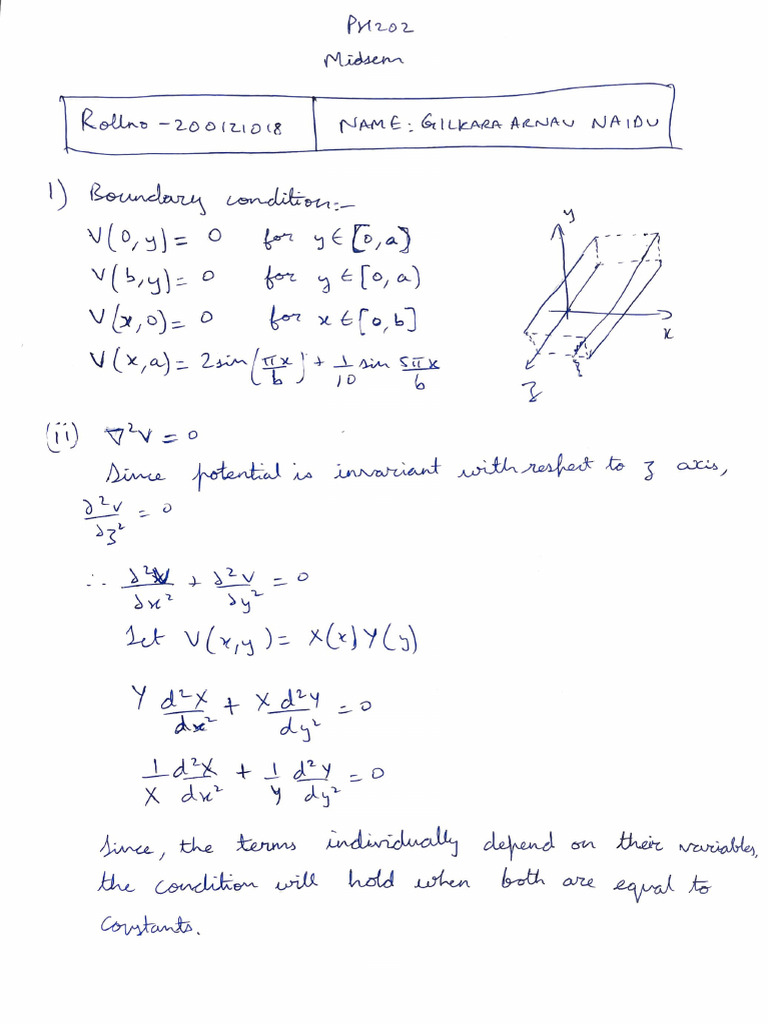 PH202
Midsem
Rollno - 200121018 NAME: GILKARA ARNAV NAIDU
1) Boundary condition:-
V(0,y) = 0 for y ∈ [0,a]
V(b,y) = 0 for y ∈ [0,a)
V(x,0) = 0 for x ∈ [0,b]
V(x,a) = 2 sin(πx/b) + 1/10 sin 5πx/b
y
x
z
(ii) ∇²V = 0
Since potential is invariant with respect to z axis,
∂²V/∂z² = 0
∴ ∂²V/∂x² + ∂²V/∂y² = 0
Let V(x,y) = X(x)Y(y)
Y d²X/dx² + X d²Y/dy² = 0
1/X d²X/dx² + 1/Y d²Y/dy² = 0
Since, the terms individually depend on their variables,
the condition will hold when both are equal to
constants.